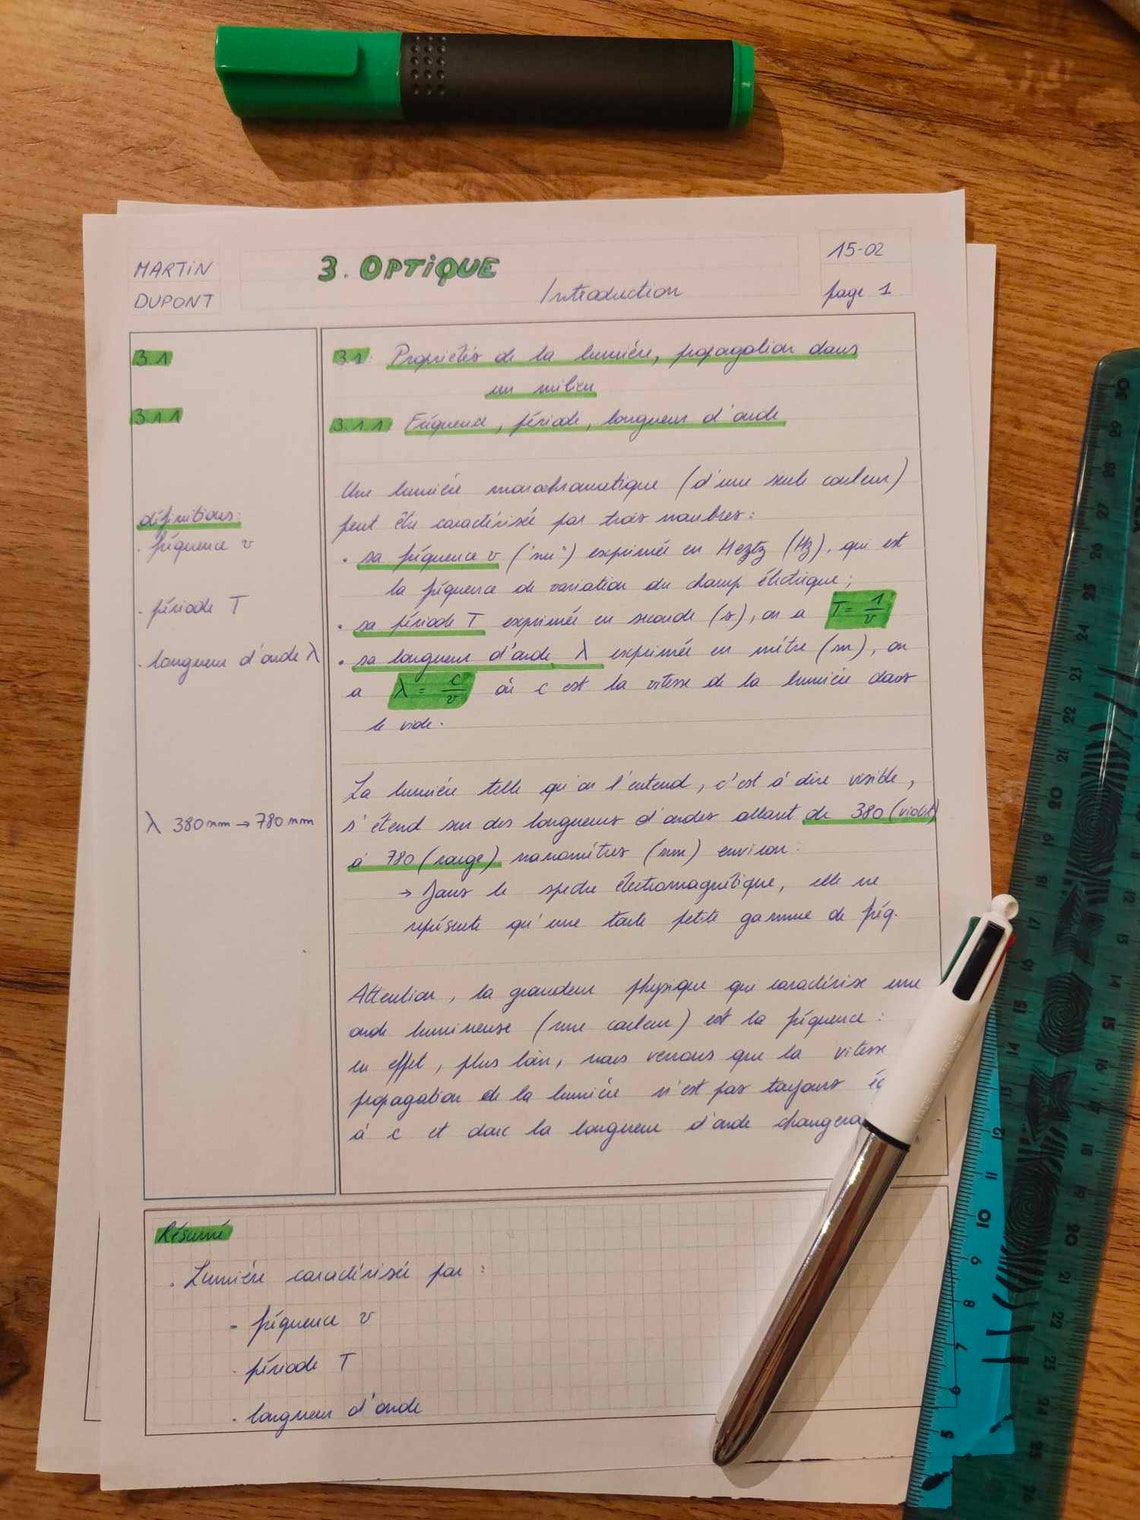 MARTIN
DUPONT
3. OPTIQUE
Introduction
15-02
page 1
3.1
3.1.1
définitions:
. fréquence ν
. période T
. longueur d'onde λ
λ 380 nm → 780 nm
3.1: Propriétés de la lumière, propagation dans
un milieu
3.1.1 Fréquence, période, longueur d'onde
Une lumière monochromatique (d'une seule couleur)
peut être caractérisée par trois nombres:
. sa fréquence ν ("nu") exprimée en Hertz (Hz), qui est
la fréquence de variation du champ électrique;
. sa période T exprimée en seconde (s), on a T = 1/ν
. sa longueur d'onde λ exprimée en mètre (m), on
a λ = c/ν où c est la vitesse de la lumière dans
le vide.
La lumière telle qu'on l'entend, c'est à dire visible,
s'étend sur des longueurs d'ondes allant de 380 (violet)
à 780 (rouge) nanomètres (nm) environ:
→ Dans le spectre électromagnétique, elle ne
représente qu'une toute petite gamme de fréq.
Attention, la grandeur physique qui caractérise une
onde lumineuse (une couleur) est la fréquence:
en effet, plus loin, nous verrons que la vitesse
propagation de la lumière n'est pas toujours
à c et donc la longueur d'onde changera
Résumé
. Lumière caractérisée par:
- fréquence ν
. période T
. longueur d'onde